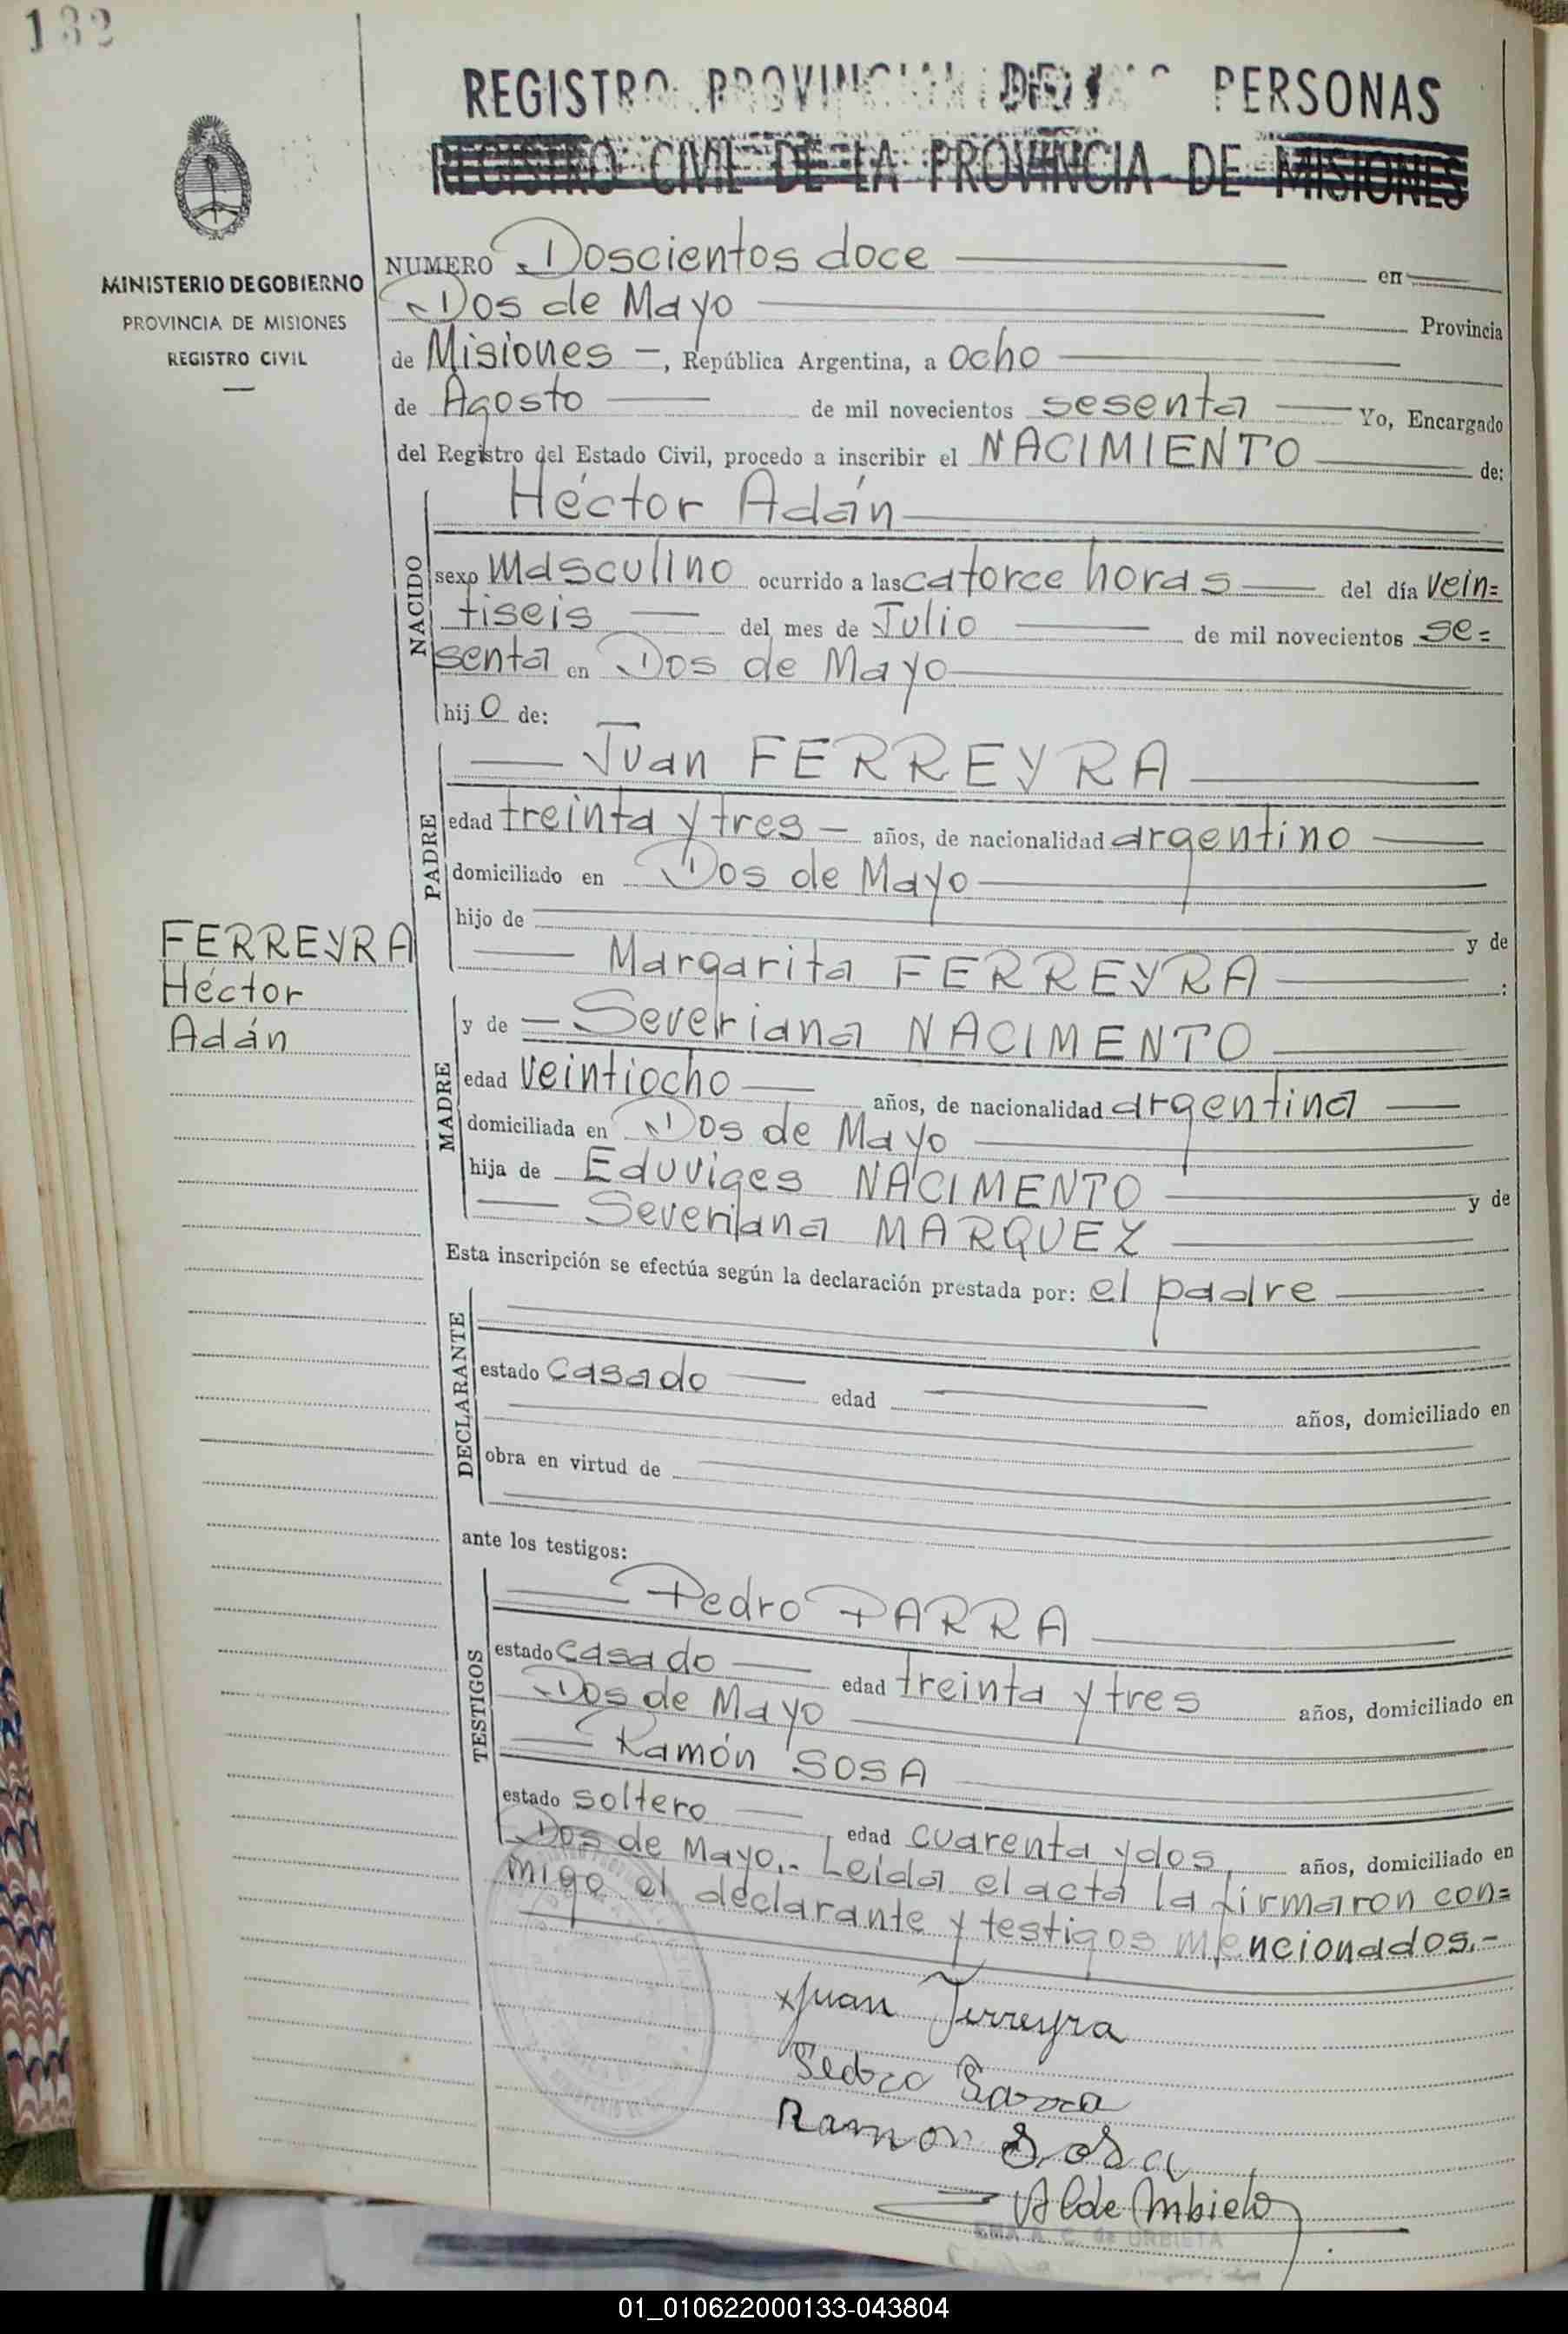 132
REGISTRO PROVINCIAL DE LAS PERSONAS
REGISTRO CIVIL DE LA PROVINCIA DE MISIONES
MINISTERIO DE GOBIERNO
PROVINCIA DE MISIONES
REGISTRO CIVIL
NUMERO Doscientos doce en
Dos de Mayo Provincia
de Misiones -, República Argentina, a ocho
de Agosto de mil novecientos sesenta Yo, Encargado
del Registro del Estado Civil, procedo a inscribir el NACIMIENTO de:
NACIDO
Héctor Adán
sexo Masculino ocurrido a las catorce horas del día vein=
tiseis del mes de Julio de mil novecientos se=
senta en Dos de Mayo
hijo de:
PADRE
Juan FERREYRA
edad treinta y tres - años, de nacionalidad argentino
domiciliado en Dos de Mayo
hijo de y de
Margarita FERREYRA :
FERREYRA
Héctor
Adán
MADRE
y de Severiana NACIMENTO
edad veintiocho años, de nacionalidad argentina
domiciliada en Dos de Mayo
hija de Eduviges NACIMENTO y de
Severiana MARQUEZ
Esta inscripción se efectúa según la declaración prestada por: el padre
DECLARANTE
estado casado edad años, domiciliado en
obra en virtud de
ante los testigos:
TESTIGOS
Pedro PARRA
estado casado edad treinta y tres años, domiciliado en
Dos de Mayo
Ramón SOSA
estado soltero edad cuarenta y dos, años, domiciliado en
Dos de Mayo.- Leída el acta la firmaron con=
migo el declarante y testigos mencionados.-
x Juan Ferreyra
Pedro Parra
Ramon Sosa
A C de Urbieta
EMA A. C. de URBIETA
01_010622000133-043804